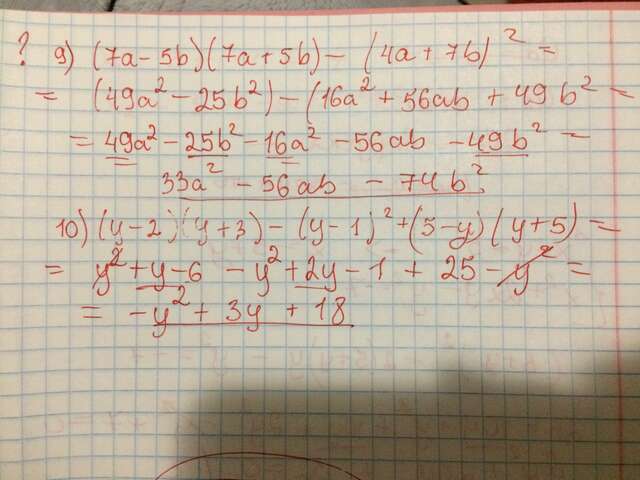 ? 9) (7a-5b)(7a+5b) - (4a+7b)² =
= (49a² - 25b²) - (16a² + 56ab + 49b² =
= 49a² - 25b² - 16a² - 56ab - 49b² =
33a² - 56ab - 74b²
10) (y-2)(y+3) - (y-1)² + (5-y)(y+5) =
= y² + y - 6 - y² + 2y - 1 + 25 - y² =
= -y² + 3y + 18